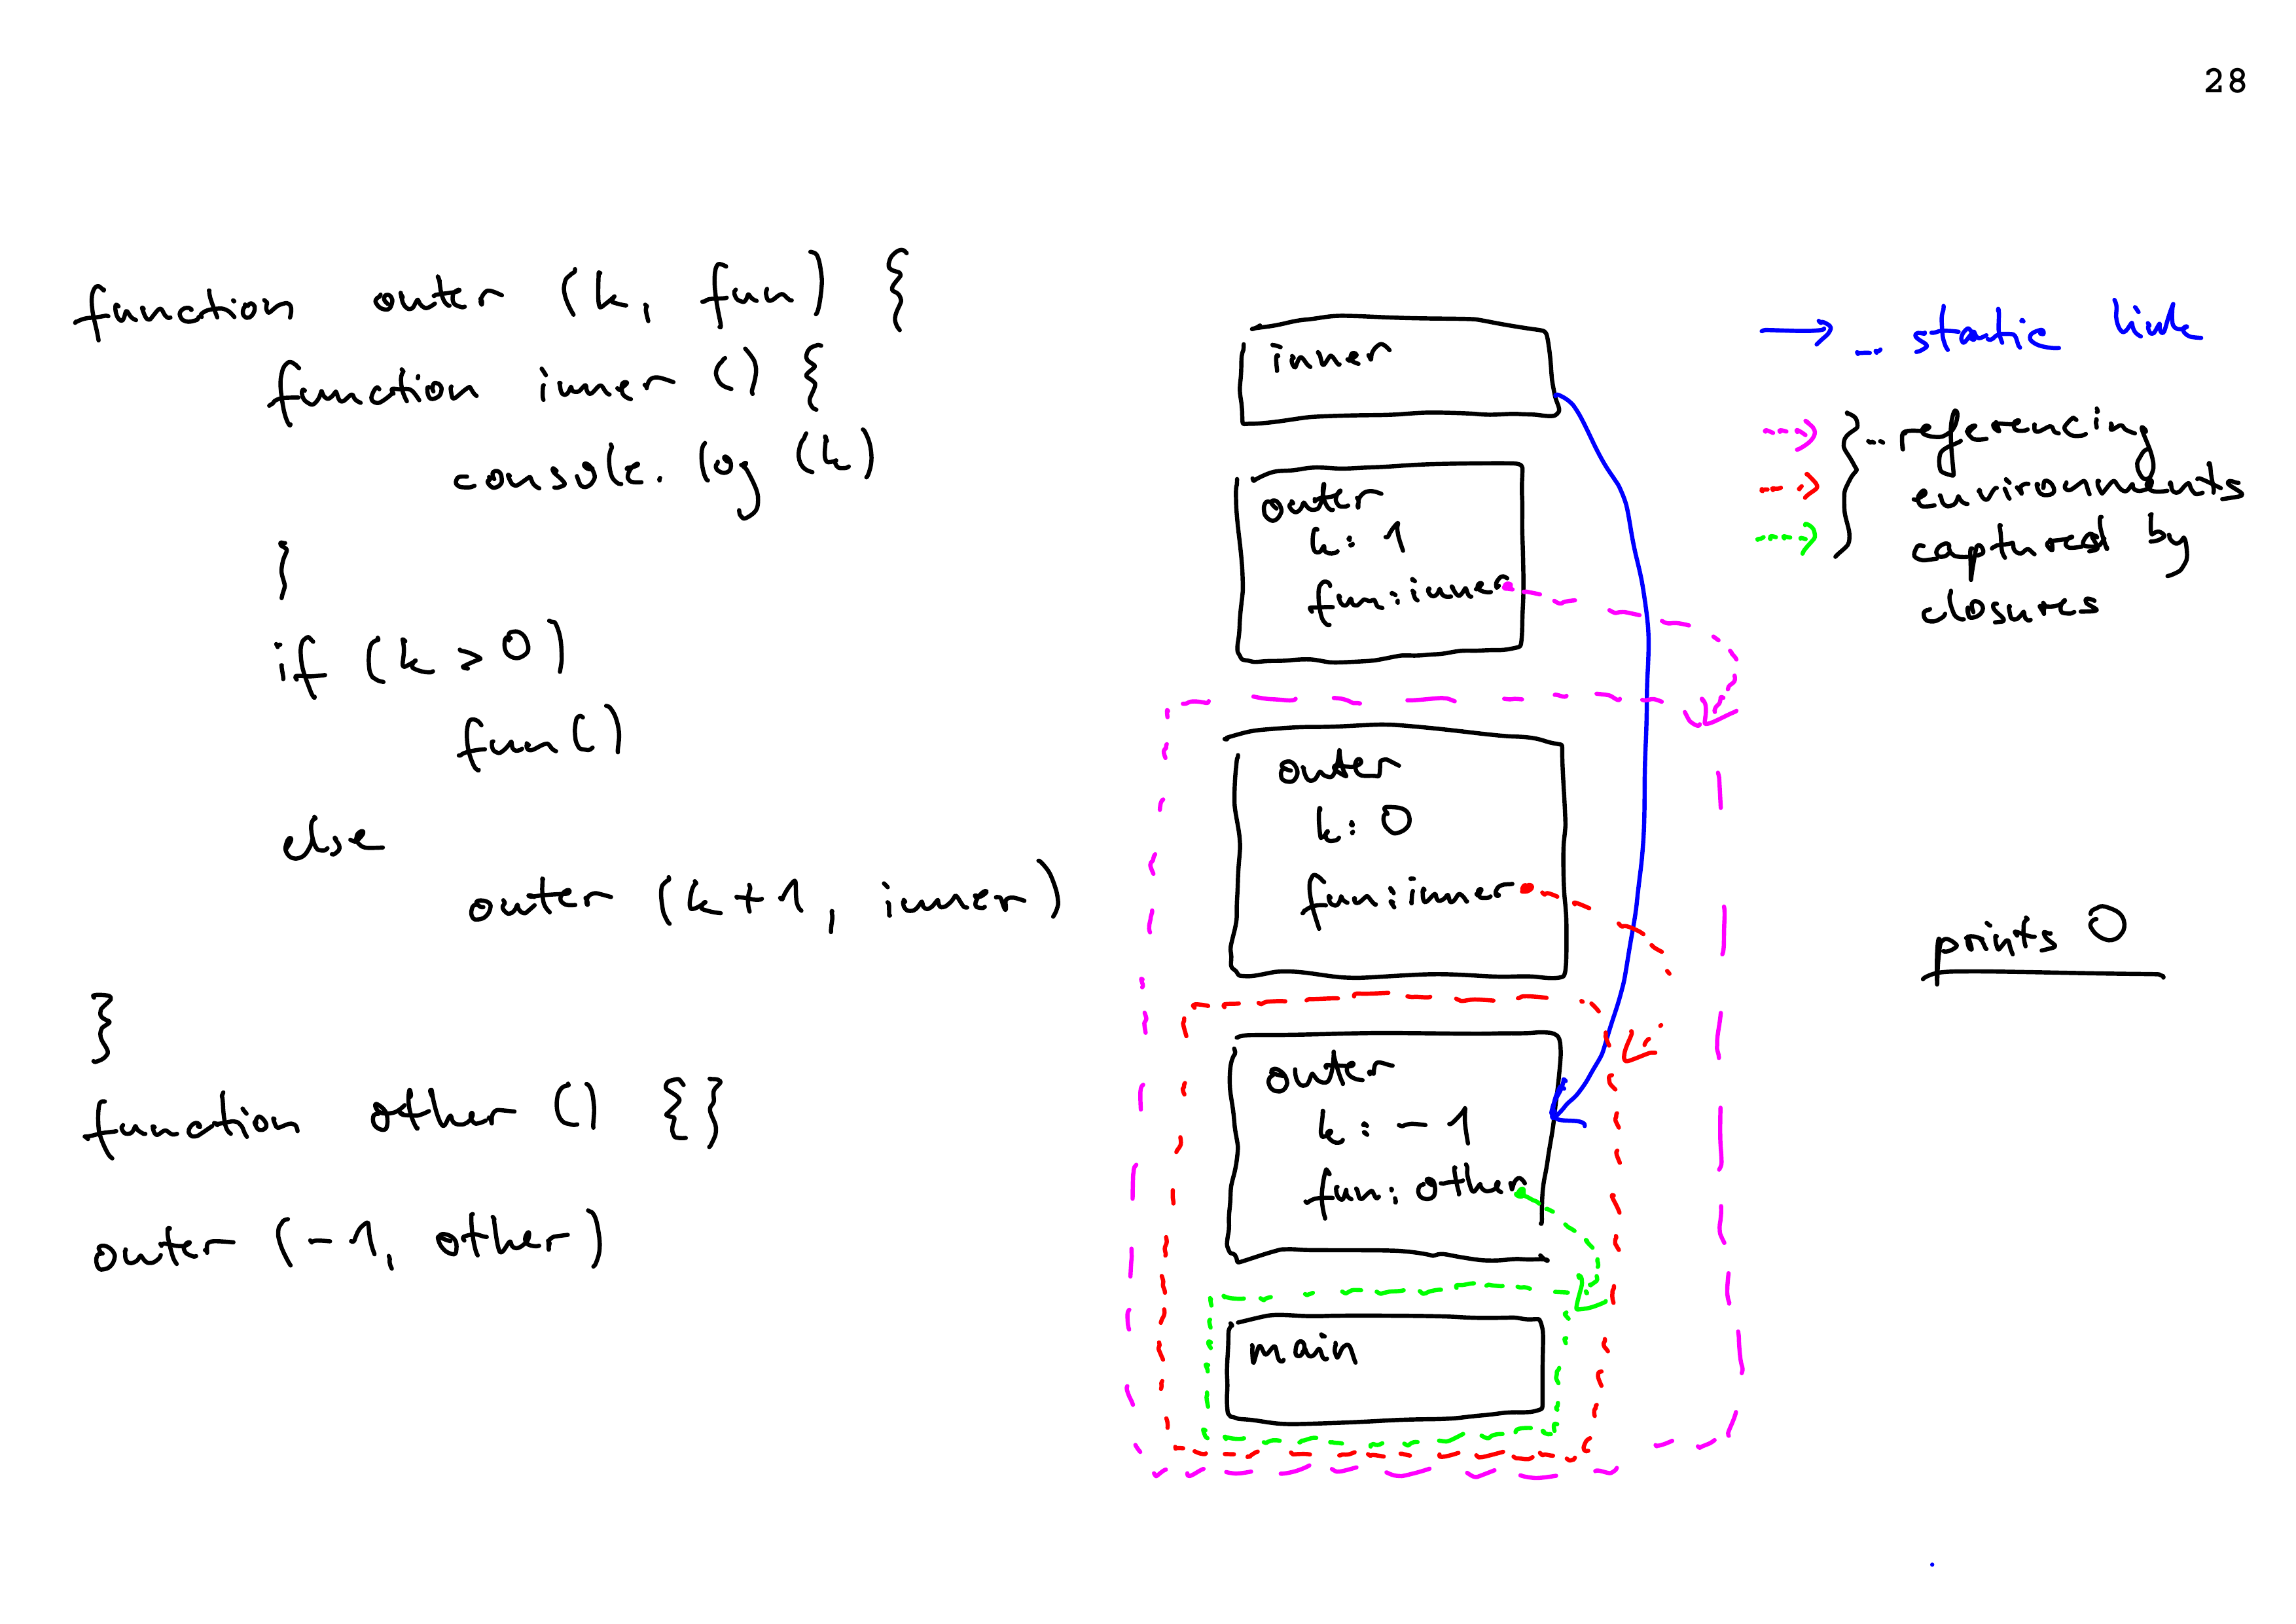 28
function outer (k, fun) {
function inner () {
console.log (k)
}
if (k > 0)
fun()
else
outer (k+1, inner)
}
function other () {}
outer (-1, other)
inner
outer
k: 1
fun: inner
outer
k: 0
fun: inner
outer
k: -1
fun: other
main
... static link
} ... referencing
environments
captured by
closures
points 0